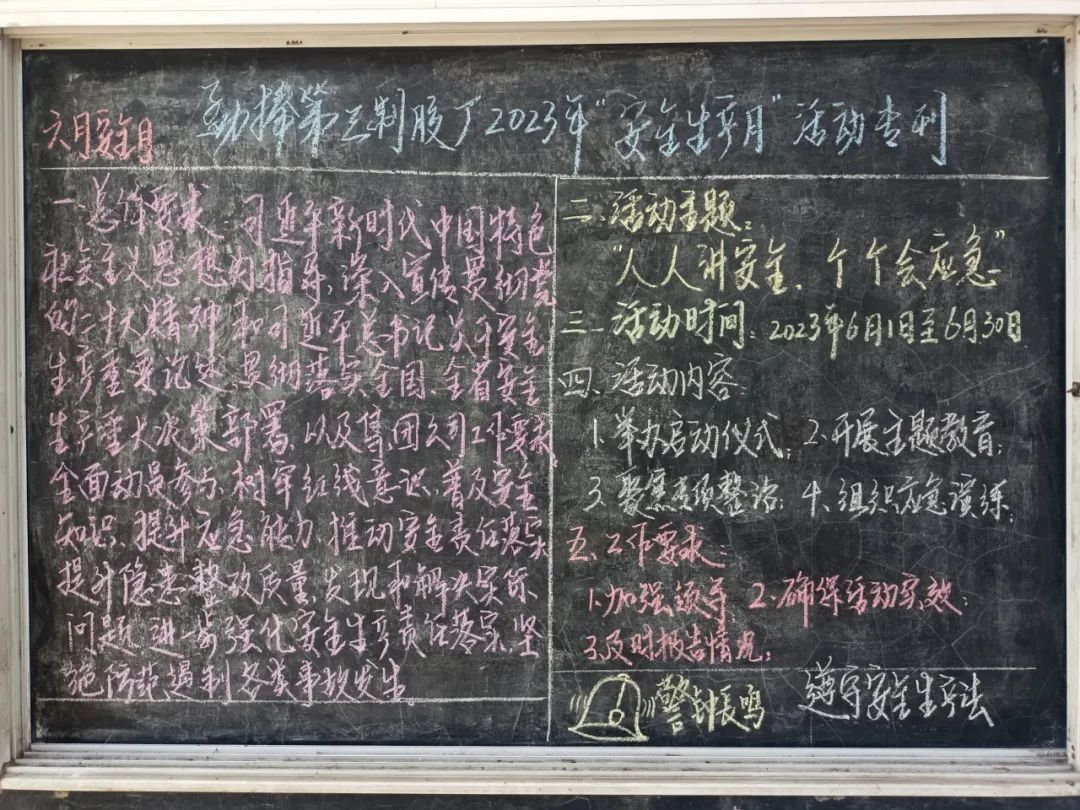 六月安全月
勐捧第三制胶厂2023年“安全生产月”活动专刊
一.总体要求:习近平新时代中国特色
社会主义思想为指导,深入宣传贯彻党
的二十大精神和习近平总书记关于安全
生产重要论述,贯彻落实全国、全省安全
生产重大决策部署,以及集团公司工作要求
全面动员参与,树牢红线意识,普及安全
知识,提升应急能力,推动安全责任落实
提升隐患整改质量,发现和解决实际
问题,进一步强化安全生产责任落实,坚
绝防范遏制各类事故发生
二、活动主题:
“人人讲安全、个个会应急”
三、活动时间:2023年6月1日至6月30日
四、活动内容
1.举办启动仪式;2.开展主题教育;
3.聚焦专项整治;4.组织应急演练;
五、工作要求:
1.加强领导;2.确保活动实效;
3.及时报告情况;
警钟长鸣 遵守安全生产法